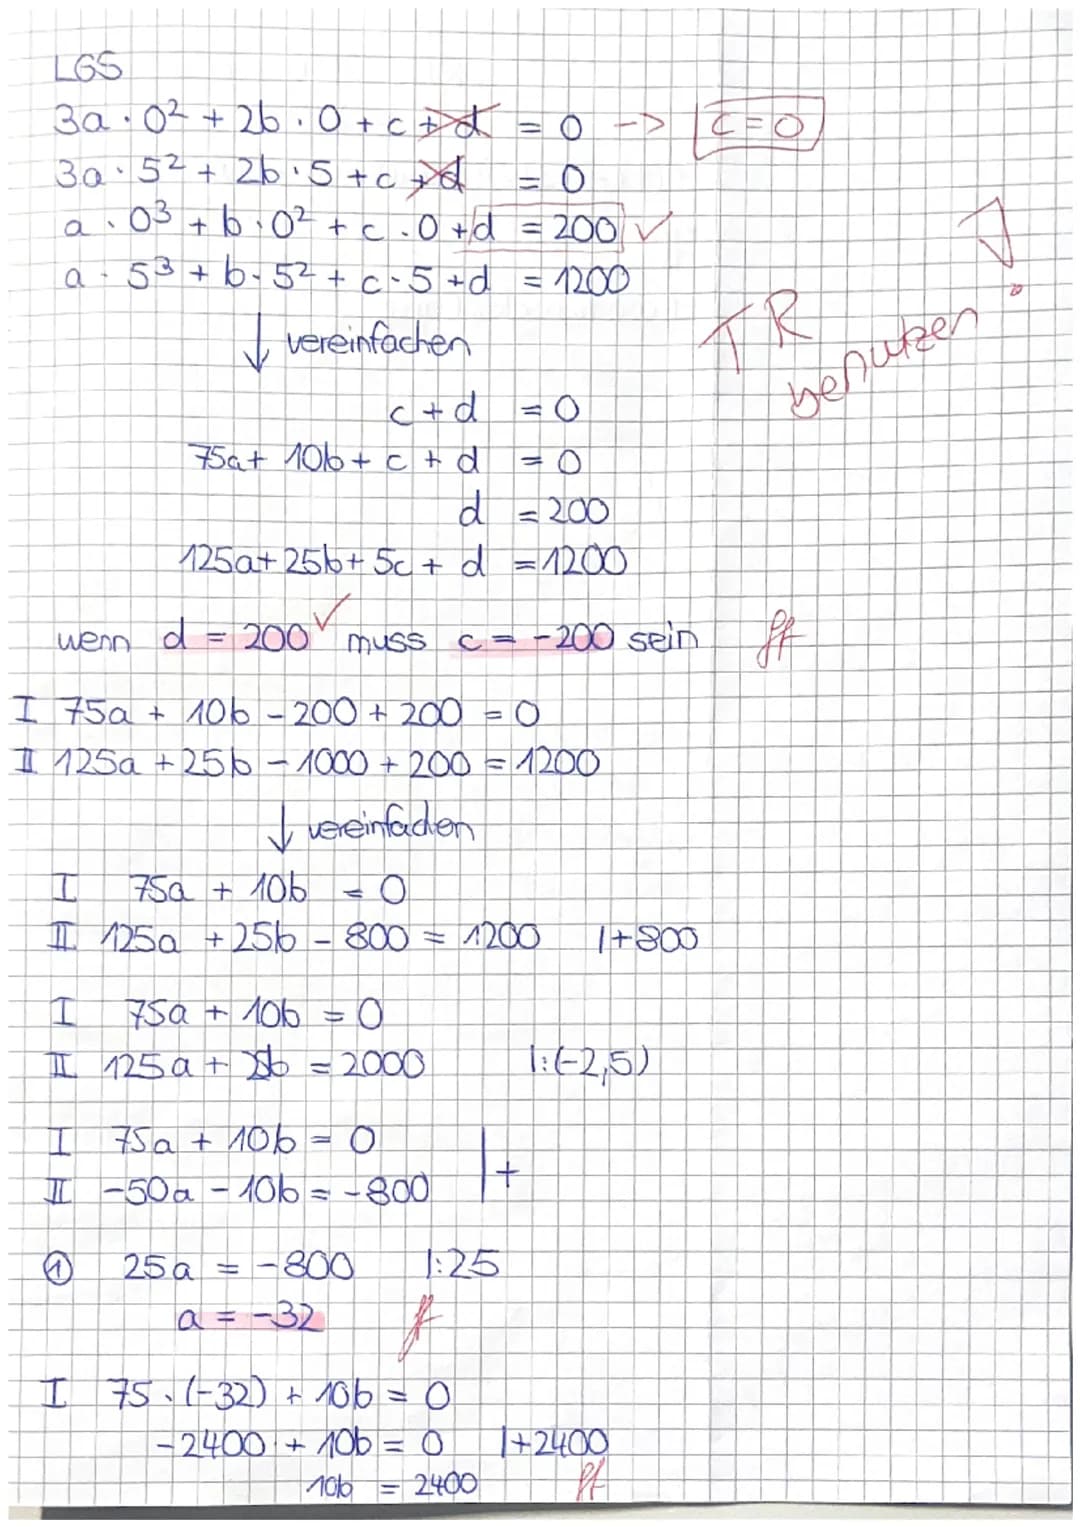 LGS
3a · 0² + 2b · 0 + c + d = 0 -> c = 0
3a · 5² + 2b · 5 + c + d = 0
a · 0³ + b · 0² + c · 0 + d = 200 ✓
a · 5³ + b · 5² + c · 5 + d = 1200
TR benutzen!
↓ vereinfachen
c + d = 0
75a + 10b + c + d = 0
d = 200
125a + 25b + 5c + d = 1200
wenn d = 200 ✓ muss c = -200 sein ff
I 75a + 10b - 200 + 200 = 0
II 125a + 25b - 1000 + 200 = 1200
↓ vereinfachen
I 75a + 10b = 0
II 125a + 25b - 800 = 1200 |+800
I 75a + 10b = 0
II 125a + 25b = 2000 |:(-2,5)
I 75a + 10b = 0
II -50a - 10b = -800 |+
① 25a = -800 |:25
a = -32 f
I 75 · (-32) + 10b = 0
-2400 + 10b = 0 |+2400
10b = 2400 ff